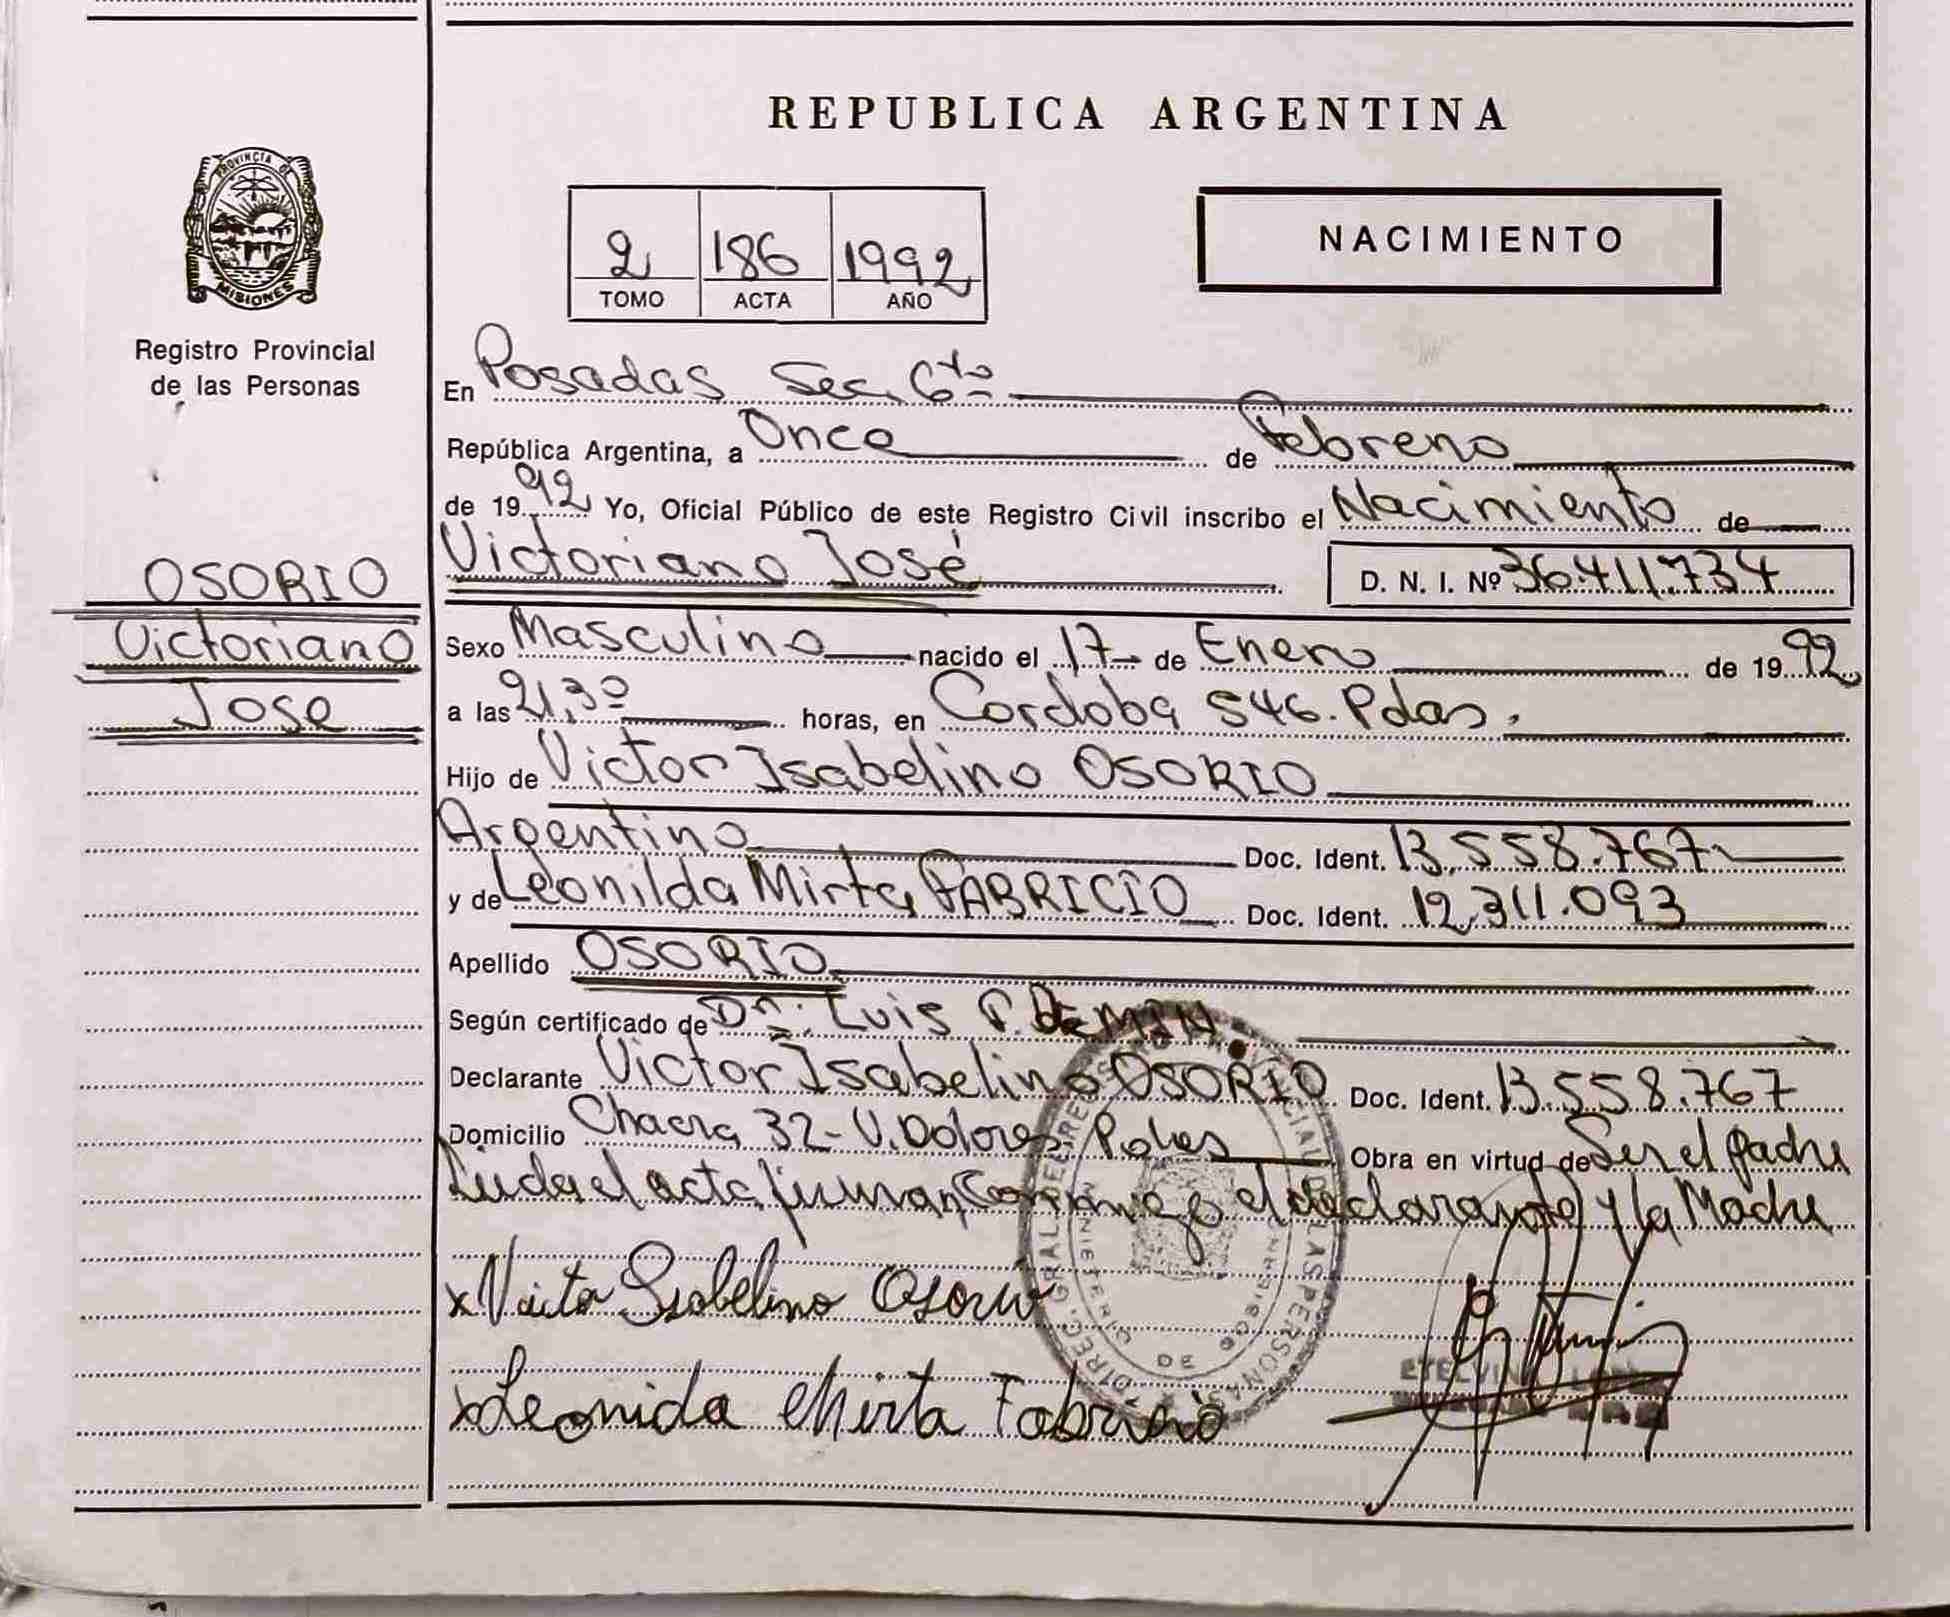 REPUBLICA ARGENTINA
PROVINCIA DE
MISIONES
Registro Provincial
de las Personas
2 186 1992
TOMO ACTA AÑO
NACIMIENTO
En Posadas Sec. 6ta
República Argentina, a Once de Febrero
de 1992 Yo, Oficial Público de este Registro Civil inscribo el Nacimiento de
Victoriano José D. N. I. Nº 36.411.734
OSORIO
Victoriano
Jose
Sexo Masculino nacido el 17 de Enero de 1992
a las 21,30 horas, en Cordoba 546. Pdas.
Hijo de Victor Isabelino OSORIO
Argentino Doc. Ident. 13.558.767
y de Leonilda Mirta FABRICIO Doc. Ident. 12.311.093
Apellido OSORIO
Según certificado de Dn. Luis P.
Declarante Victor Isabelino OSORIO Doc. Ident. 13.558.767
Domicilio Chacra 32- V. Dolores Obra en virtud de Ser el padre
el acta firman Conmigo el declarante y la Madre
x Victor Isabelino Osorio
x Leonida Mirta Fabricio
DIREC. GRAL DEL REG
LAS PERSONAS
DE